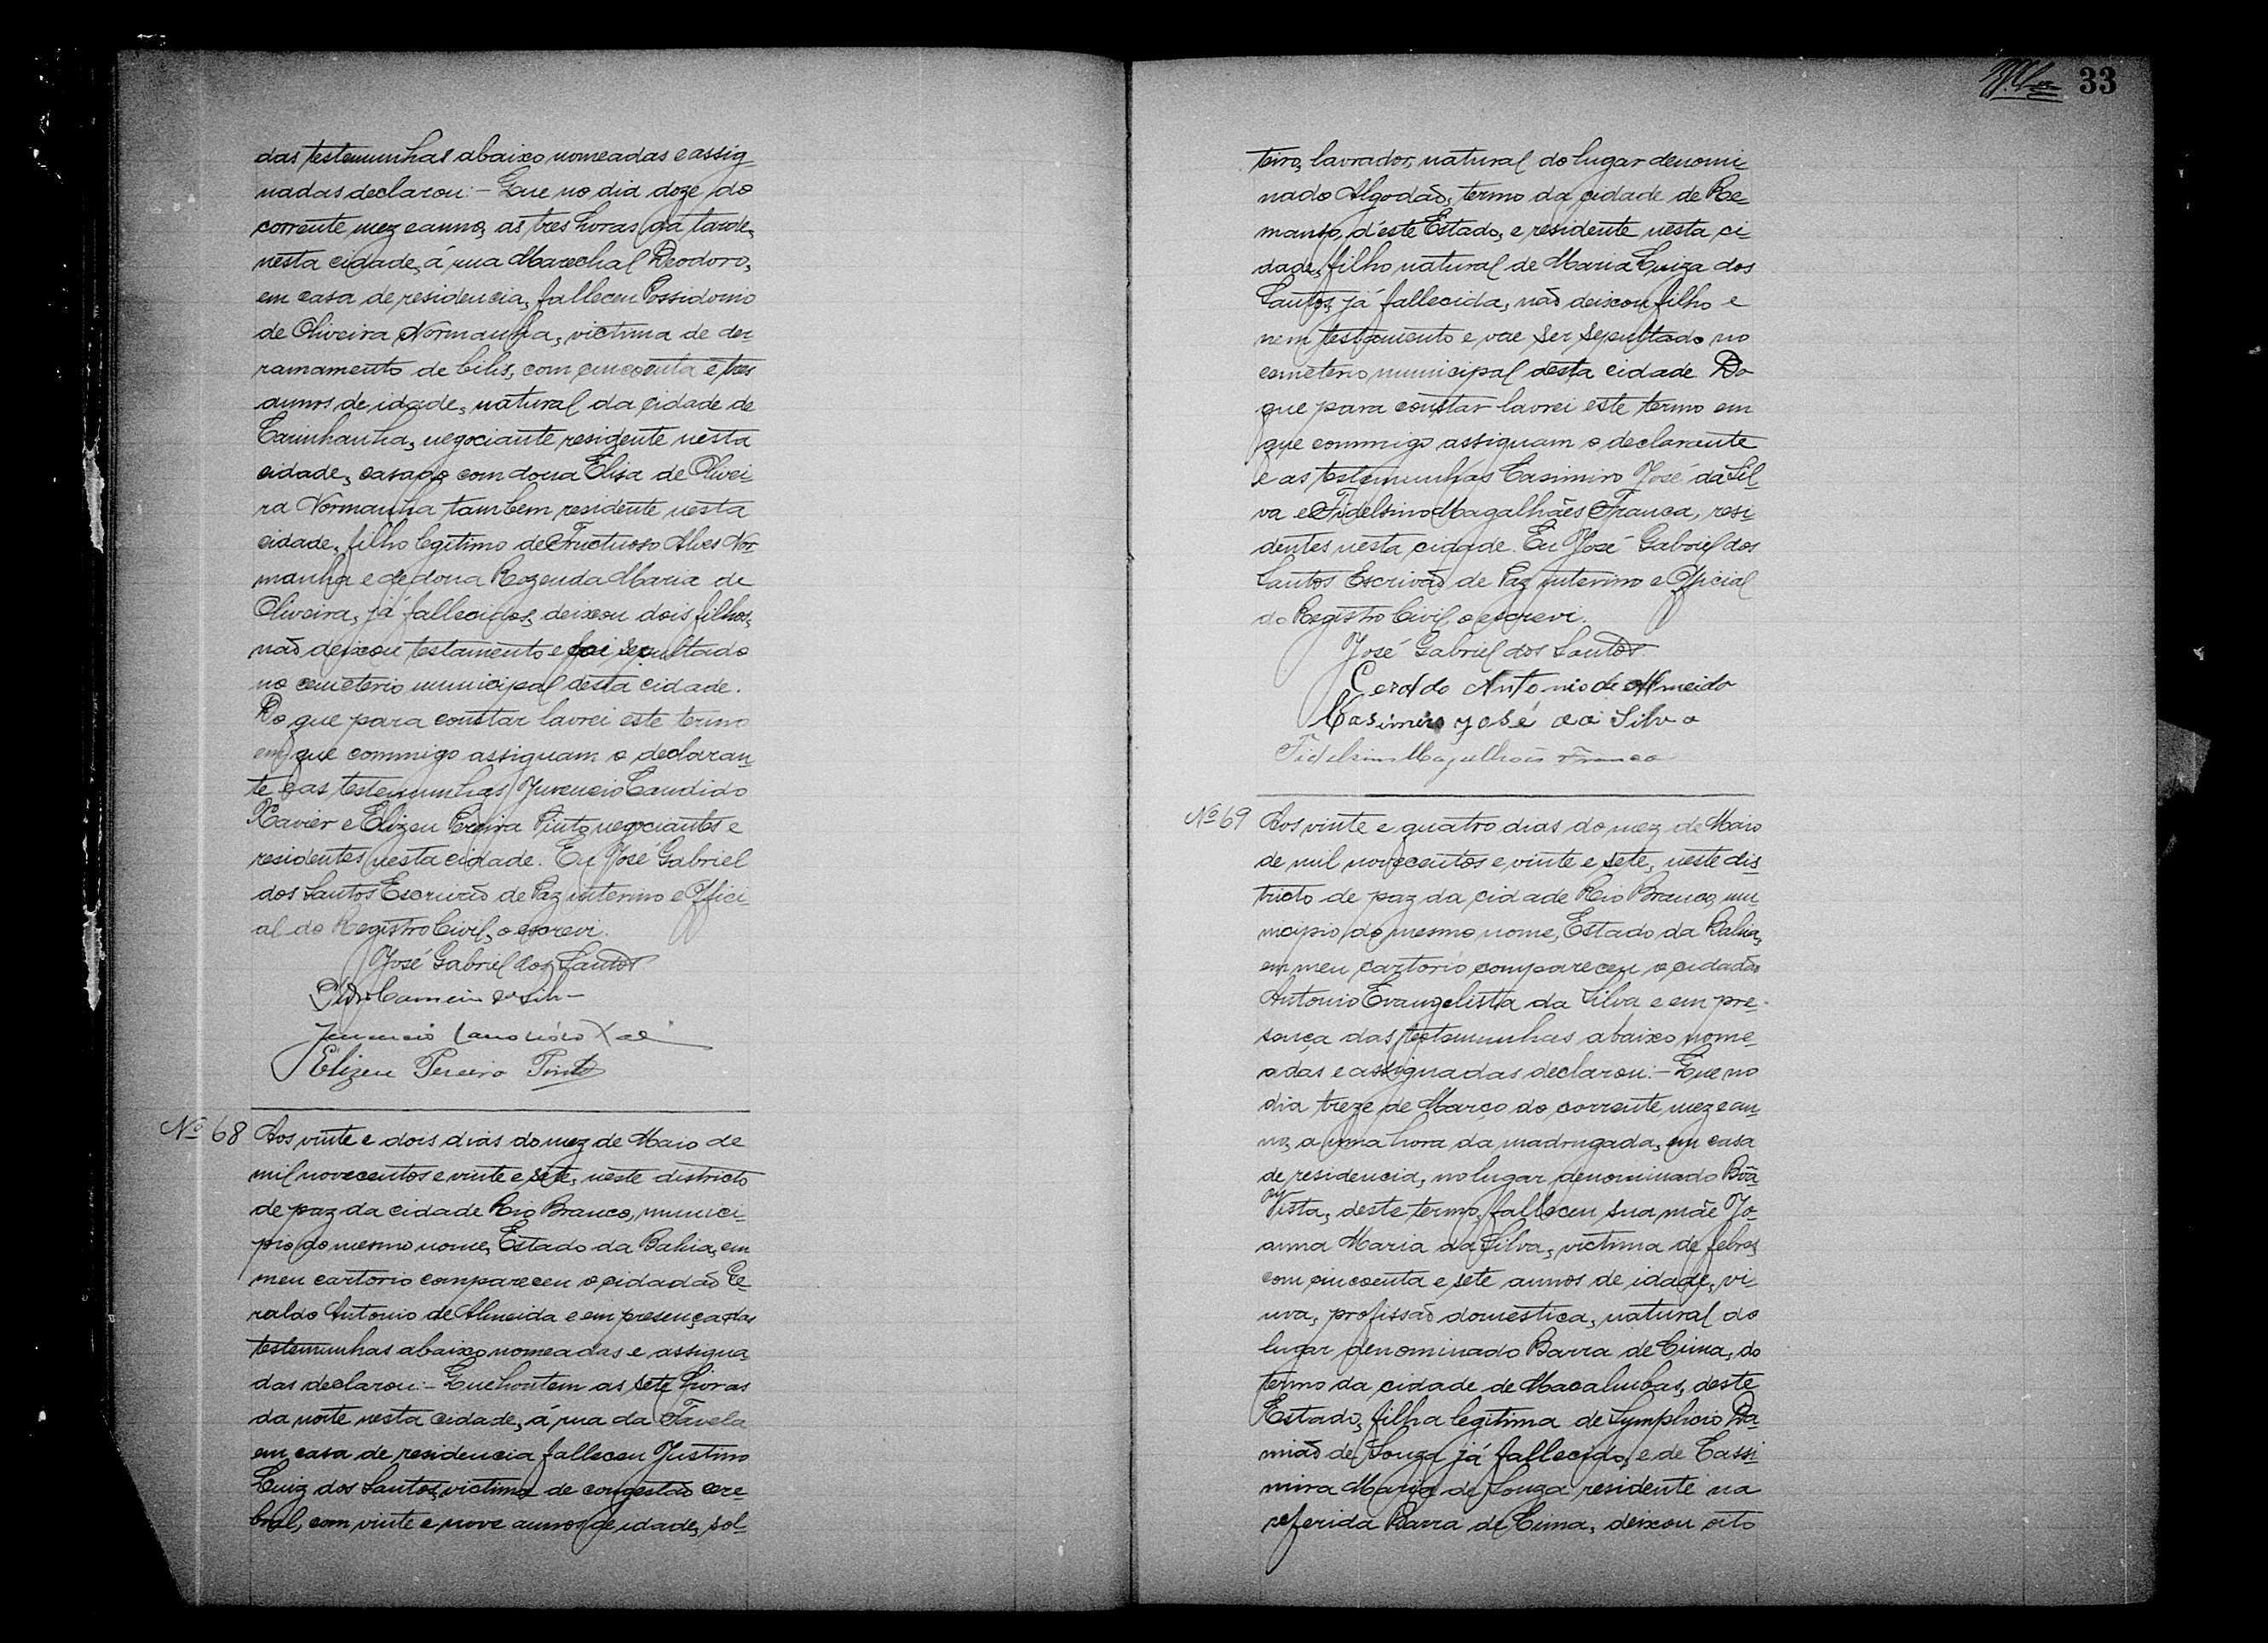 das testemunhas abaixo nomeadas e assig-
nadas declarou:- Que no dia doze do
corrente mez e anno, as tres horas da tarde,
nesta cidade, á rua Marechal Deodoro,
em casa de residencia, falleceu Possidonio
de Oliveira Normanha, victima de der-
ramamento de bilis, com cincoenta e tres
annos de idade, natural da cidade de
Carinhanha, negociante residente nesta
cidade, casado com dona Elisa de Olivei-
ra Normanha tambem residente nesta
cidade, filho legitimo de Fructuoso Alves Nor-
manha e de dona Rozenda Maria de
Oliveira, já fallecidos, deixou dois filhos,
não deixou testamento e foi sepultado
no cemeterio municipal desta cidade.
Do que para constar lavrei este termo
em que commigo assignam o declaran-
te e as testemunhas Juvencio Candido
Xavier e Elizeu Pereira Pinto negociantes e
residentes nesta cidade. Eu José Gabriel
dos Santos Escrivão de Paz interino e Offici-
al do Registro Civil, o escrevi.
José Gabriel dos Santos
Carneiro da Silva
Juvencio Candido Xavier
Elizeu Pereira Pinto
Nº 68 Aos vinte e dois dias do mez de Maio de
mil novecentos e vinte e sete, neste districto
de paz da cidade Rio Branco, munici-
pio do mesmo nome, Estado da Bahia, em
meu cartorio compareceu o cidadão Ge-
raldo Antonio de Almeida e em presença das
testemunhas abaixo nomeadas e assigna-
das declarou:- Que hontem as sete horas
da noite nesta cidade, á rua da Favela
em casa de residencia falleceu Justino
Luiz dos Santos, victima de congestão cere-
bral, com vinte e nove annos de idade, sol-
33
teiro, lavrador, natural do lugar denomi
nado Algodão, termo da cidade de Re-
manso, d'este Estado, e residente nesta ci-
dade, filho natural de Maria Luiza dos
Santos, já fallecida, não deixou filho e
nem testamento e vae ser sepultado no
cemeterio municipal desta cidade. Do
que para constar lavrei este termo em
que commigo assignam o declarante
e as testemunhas Casimiro José da Sil-
va e Fidelsino Magalhães Franca, resi-
dentes nesta cidade. Eu José Gabriel dos
Santos Escrivão de Paz interino e Official
do Registro Civil, o escrevi.
José Gabriel dos Santos
Geraldo Antonio de Almeida
Casimiro José da Silva
Fidelsino Magalhães Franca
Nº 69 Aos vinte e quatro dias do mez de Maio
de mil novecentos e vinte e sete, neste dis-
tricto de paz da cidade Rio Branco, mu-
nicipio do mesmo nome, Estado da Bahia,
em meu cartorio compareceu o cidadão
Antonio Evangelista da Silva e em pre-
sença das testemunhas abaixo nome-
adas e assignadas declarou:- Que no
dia treze de Março do corrente mez e an-
no, a uma hora da madrugada, em casa
de residencia, no lugar denominado Bôa
Vista, deste termo, falleceu sua mãe Jo-
anna Maria da Silva, victima de febre,
com cincoenta e sete annos de idade, vi-
uva, profissão domestica, natural do
lugar denominado Barra de Cima, do
termo da cidade de Macahubas, deste
Estado, filha legitima de Symphicio Da-
mião de Souza já fallecido, e de Cassi-
mira Maria de Souza residente na
referida Barra de Cima, deixou oito